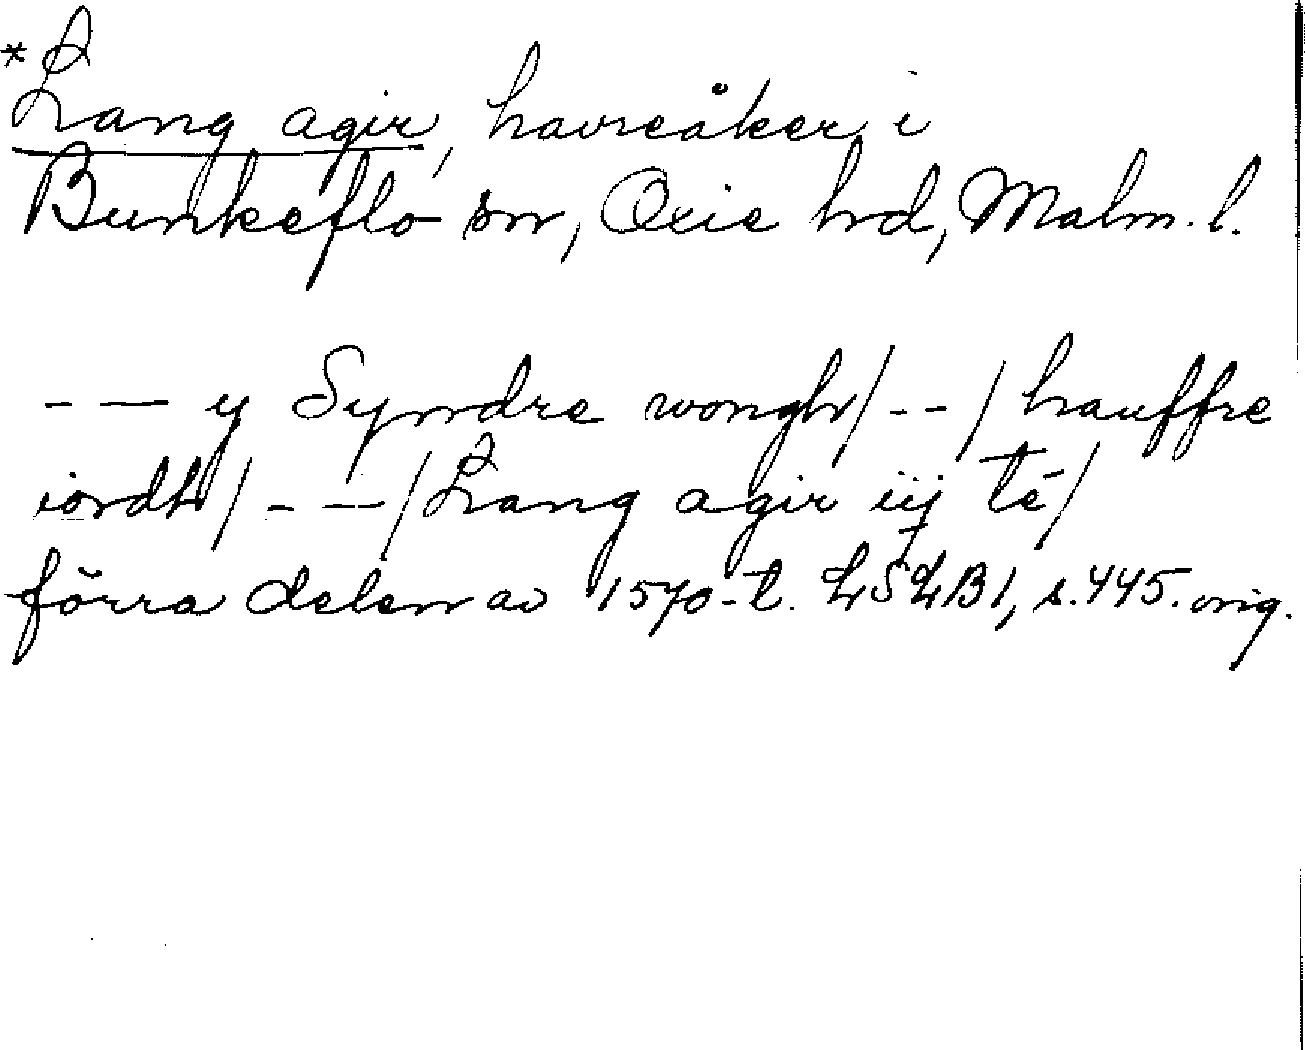 *Lang agir, havreåker i
Bunkeflo sn, Oxie hd, Malm. l.
- — y Syndre wongh/ - - / hauffre
iordh/ - — / Lang agir iij té/
förra delen av 1570-t. LSLB1, s. 445. orig.